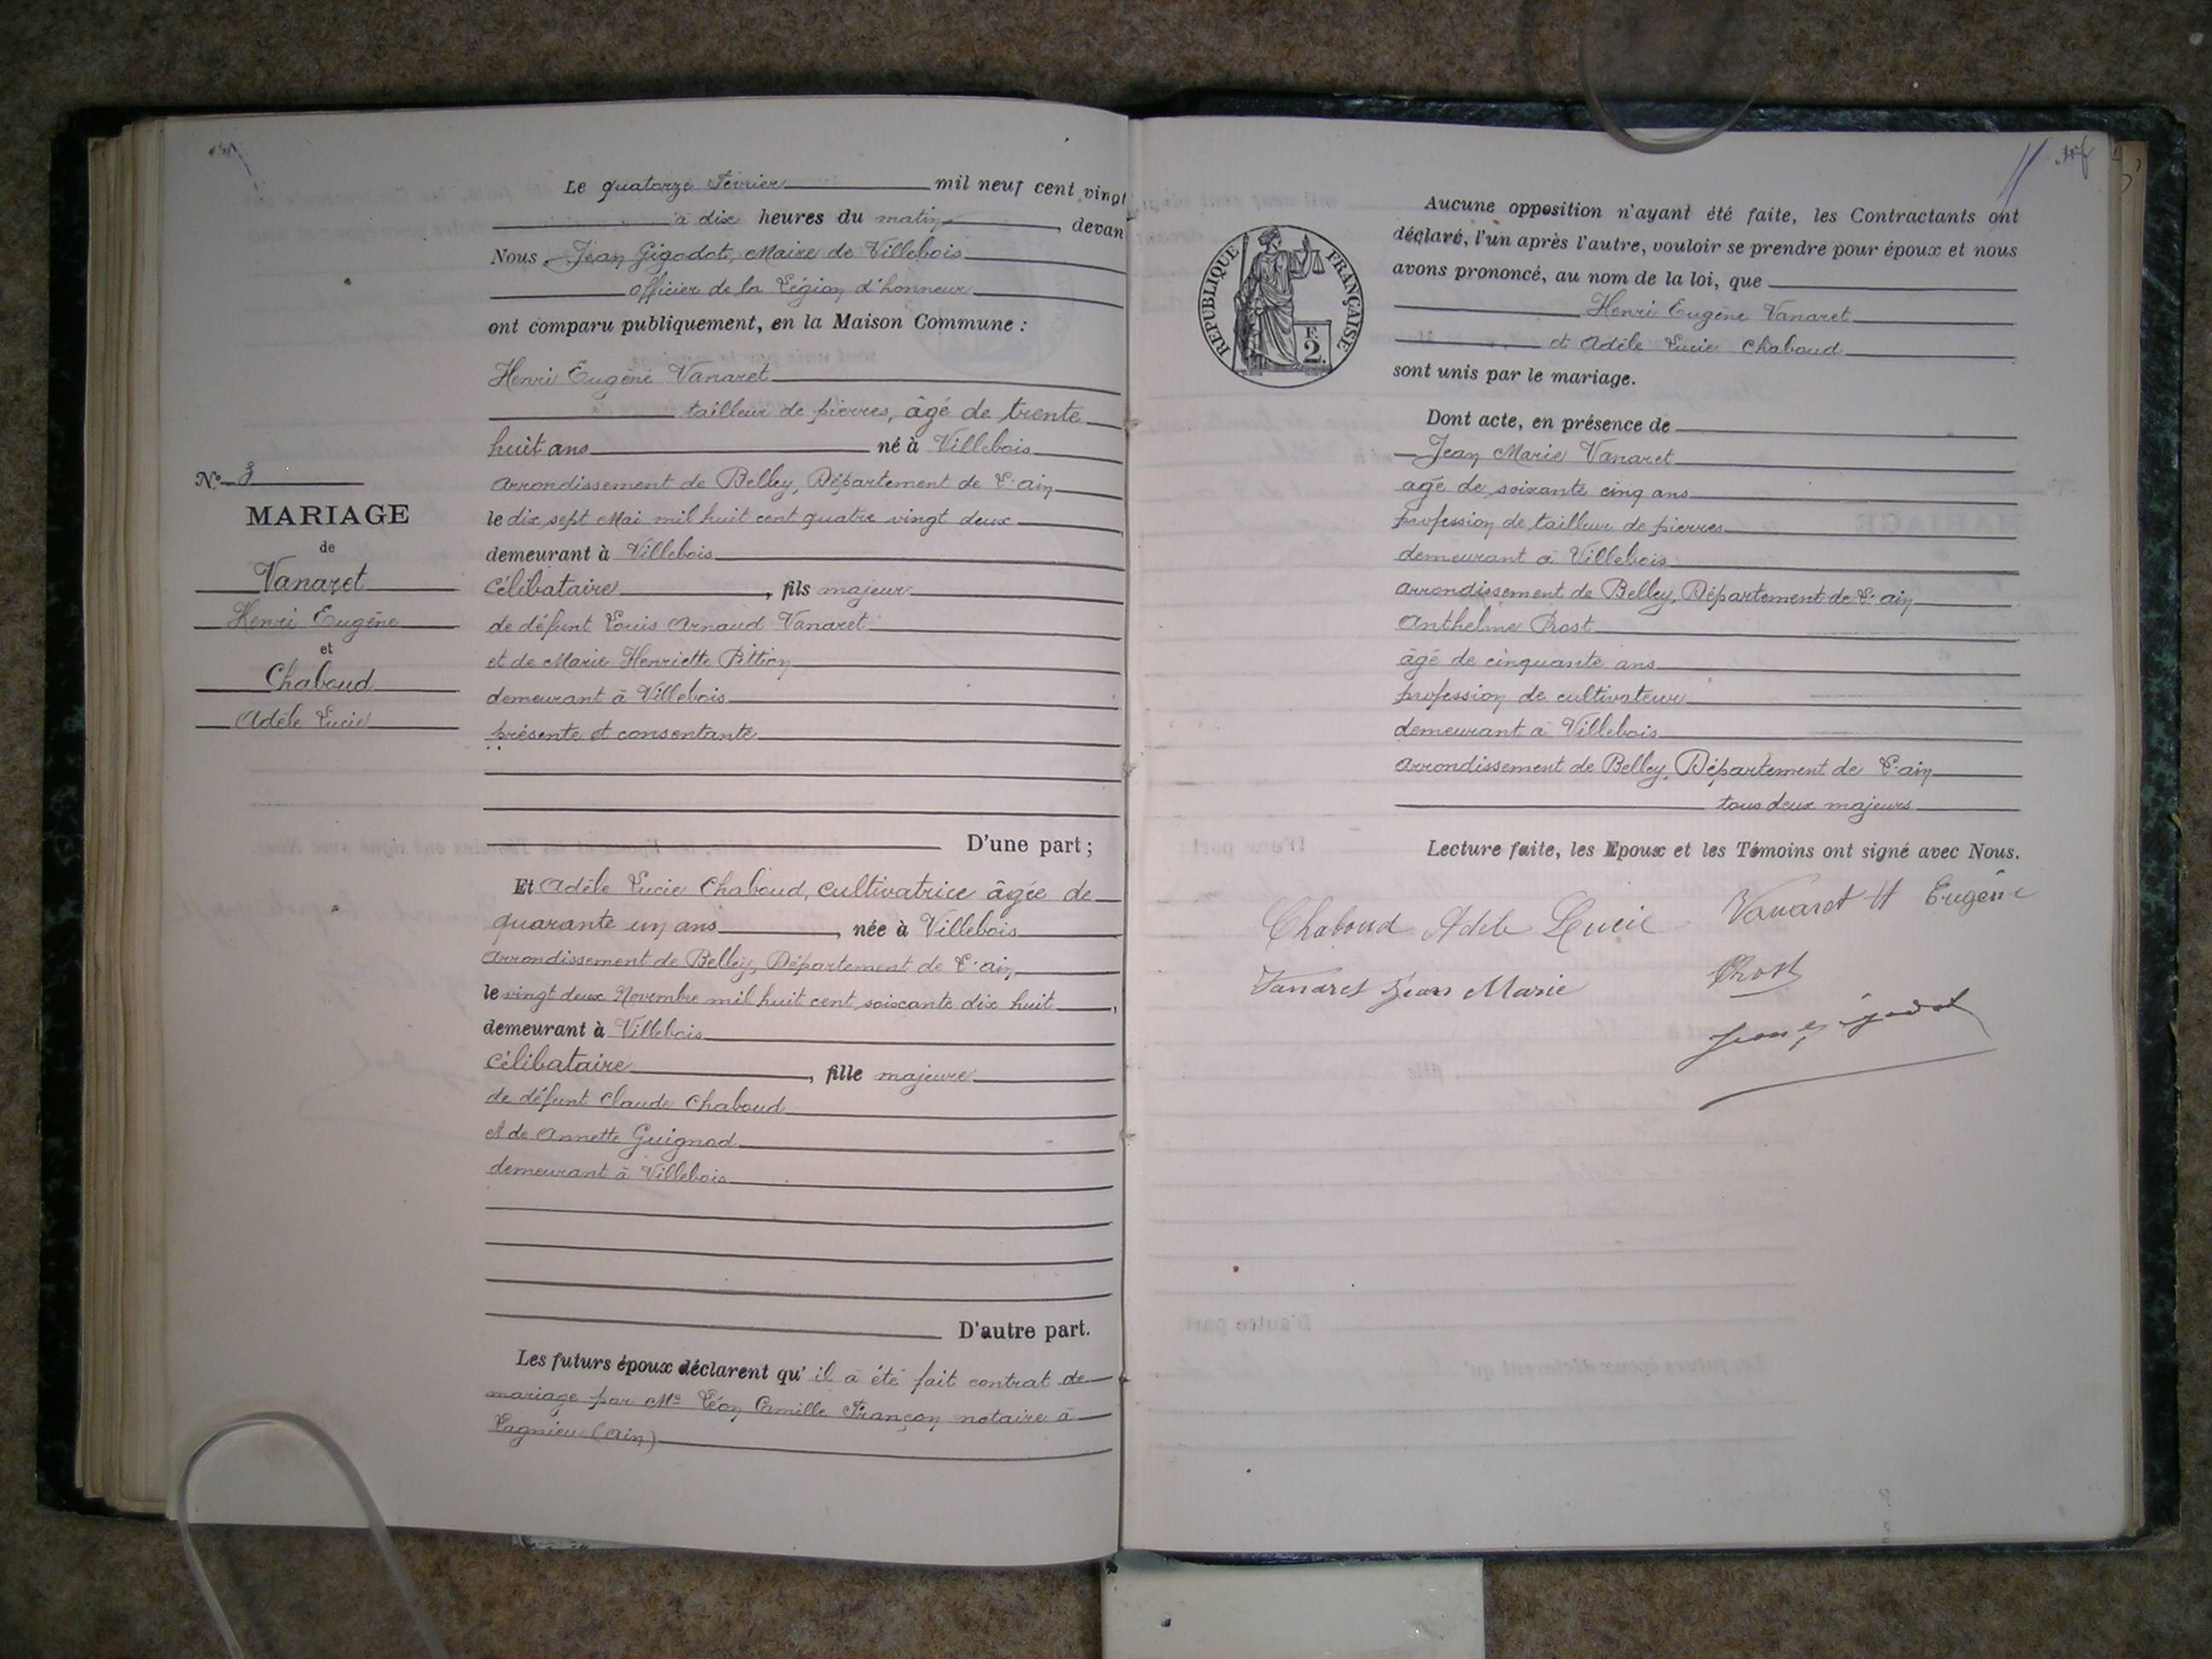 Le quatorze Février mil neuf cent vingt
à dix heures du matin, devan
Nous Jean Gigodot, Maire de Villebois
officier de la Légion d'honneur
ont comparu publiquement, en la Maison Commune :
Henri Eugène Vanaret
tailleur de pierres, âgé de trente
huit ans né à Villebois
arrondissement de Belley, Département de l'ain
le dix sept Mai mil huit cent quatre vingt deux
demeurant à Villebois
célibataire, fils majeur
de défunt Louis Arnaud Vanaret
et de Marie Henriette Pittion
demeurant à Villebois
présente et consentante
D'une part ;
Et Adèle Lucie Chaboud, cultivatrice âgée de
quarante un ans, née à Villebois
arrondissement de Belley, Département de l'ain
le vingt deux Novembre mil huit cent soixante dix huit,
demeurant à Villebois
célibataire, fille majeure
de défunt Claude Chaboud
et de Annette Guignod
demeurant à Villebois
D'autre part.
Les futurs époux déclarent qu'il a été fait contrat de
mariage par Me Léon Camille Françon notaire à
Lagnieu (ain)
No 3
MARIAGE
de
Vanaret
Henri Eugène
et
Chaboud
Adèle Lucie
RÉPUBLIQUE FRANÇAISE
F.
2.
Aucune opposition n'ayant été faite, les Contractants ont
déclaré, l'un après l'autre, vouloir se prendre pour époux et nous
avons prononcé, au nom de la loi, que
Henri Eugène Vanaret
et Adèle Lucie Chaboud
sont unis par le mariage.
Dont acte, en présence de
Jean Marie Vanaret
agé de soixante cinq ans
profession de tailleur de pierres
demeurant à Villebois
arrondissement de Belley, Département de l'ain
Anthelme Prost
âgé de cinquante ans
profession de cultivateur
demeurant à Villebois
arrondissement de Belley, Département de l'ain
tous deux majeurs
Lecture faite, les Epoux et les Témoins ont signé avec Nous.
Chaboud Adèle Lucie Vanaret H Eugène
Vanaret Jean Marie Prost
Jean Gigodot